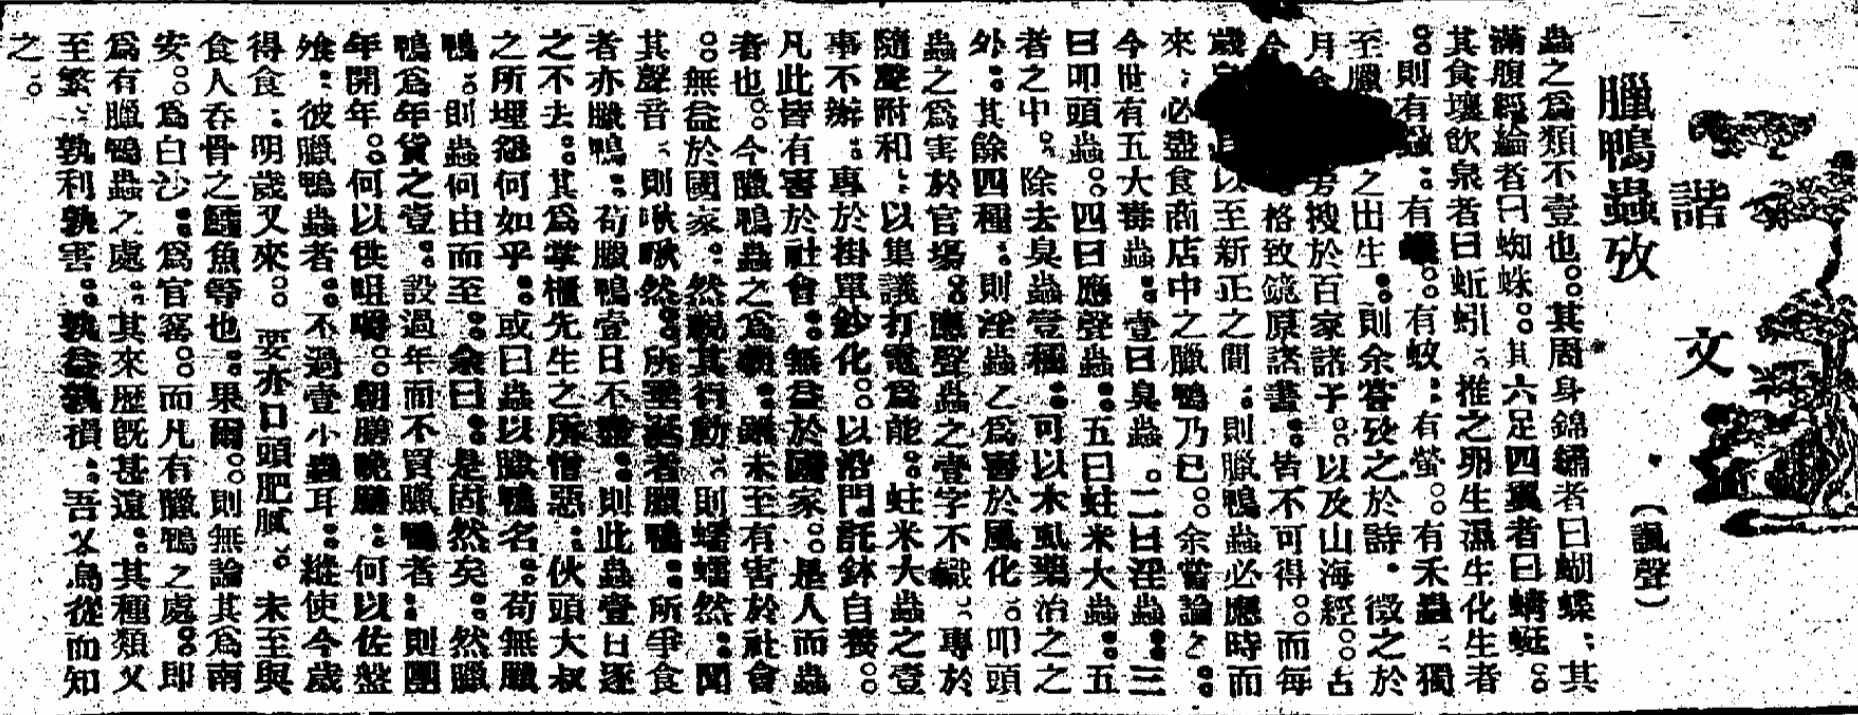 諧文
臘鴨蟲攷
（諷聲）
蟲之爲類不壹也。其周身錦繡者曰蝴蝶：其
滿腹經綸者曰蜘蛛。其六足四翼者曰蜻蜓。
其食壤飲泉者曰蚯蚓：推之卵生濕生化生者
。則有蟲：有。有蚊：有螢。有禾蟲、獨
至臘之出生：則余嘗攷之於詩．徵之於
月旁搜於百家諸子。以及山海經。古
今格致鏡原諸書：皆不可得。而每
歲以至新正之間：則臘鴨蟲必應時而
來：必盡食商店中之臘鴨乃已。余嘗論之：
今世有五大毒蟲：壹曰臭蟲。二曰淫蟲：三
曰叩頭蟲。四曰應聲蟲：五曰蛀米大蟲：五
者之中。除去臭蟲壹種：可以木虱藥治之之
外：其餘四種：則淫蟲之爲害於風化。叩頭
蟲之爲害於官塲。應聲蟲之壹字不識、專於
隨聲附和：以集議打電爲能：蛀米大蟲之壹
事不辦：專於掛單鈔化。以沿門託鉢自養。
凡此皆有害於社會：無益於國家。是人而蟲
者也。今臘鴨蟲之爲物：雖未至有害於社會
。無益於國家：然觀其行動：則蠕蠕然：聞
其聲音、則啾啾然：所至延者臘鴨：所爭食
者亦臘鴨：苟臘鴨壹日不盡：則此蟲壹日逐
之不去：其爲掌櫃先生之所憎惡：伙頭大叔
之所埋怨何如乎：或曰蟲以臘鴨名：苟無臘
鴨：則蟲何由而至：余曰：是固然矣：然臘
鴨爲年貨之壹：設過年而不買臘鴨者：則團
年開年。何以供咀嚼。朝膳晚膳：何以佐盤
飧：彼臘鴨蟲者：不過壹小蟲耳：縱使今歲
得食：明歲又來。要亦口頭肥膩。未至與
食人吞骨之鱷魚等也：果爾。則無論其爲南
安。爲白沙：爲官窰。而凡有臘鴨之處。即
爲有臘鴨蟲之處：其來歷既甚遠：其種類又
至繁：孰利孰害：孰益孰損：吾又烏從而知
之。